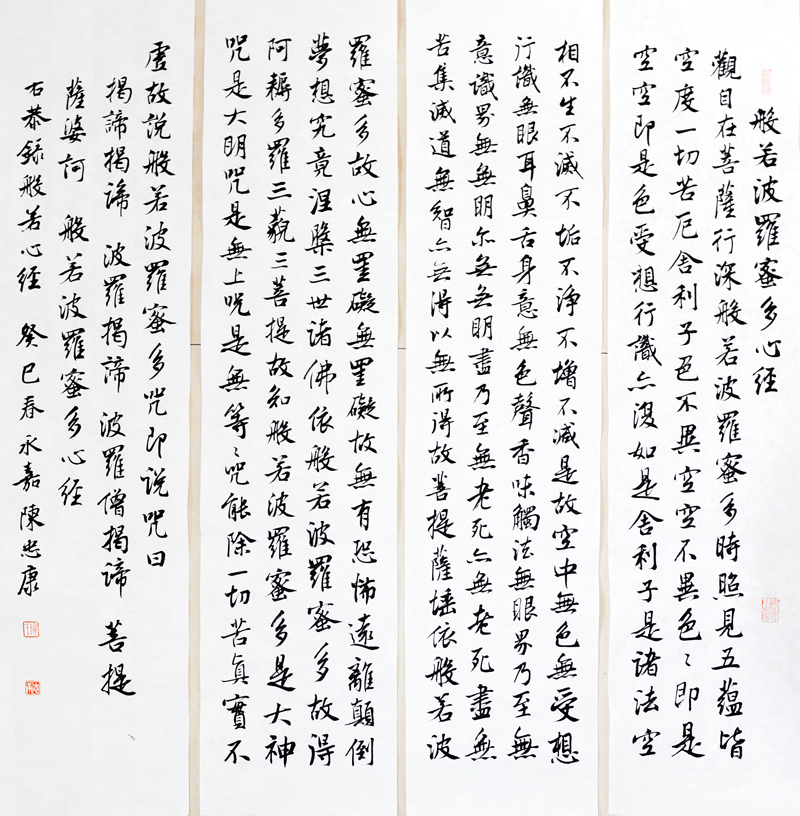 般若波羅蜜多心経
觀自在菩薩行深般若波羅蜜多時照見五蘊皆
空度一切苦厄舍利子色不異空空不異色〻即是
空空即是色受想行識亦復如是舍利子是諸法空
相不生不滅不垢不淨不增不減是故空中無色無受想
行識無眼耳鼻舌身意無色聲香味觸法無眼界乃至無
意識界無無明亦無無明盡乃至無老死亦無老死盡無
苦集滅道無智亦無得以無所得故菩提薩埵依般若波
羅蜜多故心無罣礙無罣礙故無有恐怖遠離顛倒
夢想究竟涅槃三世諸佛依般若波羅蜜多故得
阿耨多羅三藐三菩提故知般若波羅蜜多是大神
咒是大明咒是無上咒是無等〻咒能除一切苦真實不
虛故說般若波羅蜜多咒即說咒曰
揭諦揭諦 波羅揭諦 波羅僧揭諦 菩提
薩婆訶 般若波羅蜜多心経
右恭錄般若心経 癸巳春永嘉陳忠康